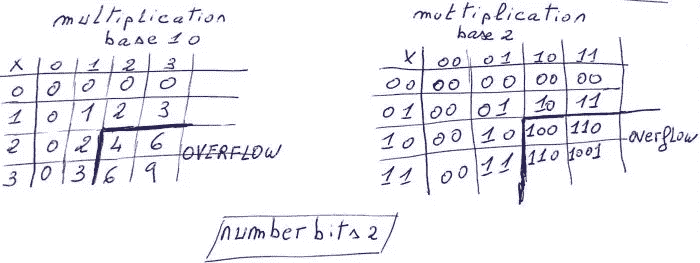 multiplication
base 10
X 0 1 2 3
0 0 0 0 0
1 0 1 2 3
2 0 2 4 6 OVERFLOW
3 0 3 6 9
multiplication
base 2
X 00 01 10 11
00 00 00 00 00
01 00 01 10 11
10 00 10 100 110 overflow
11 00 11 110 1001
number bits 2